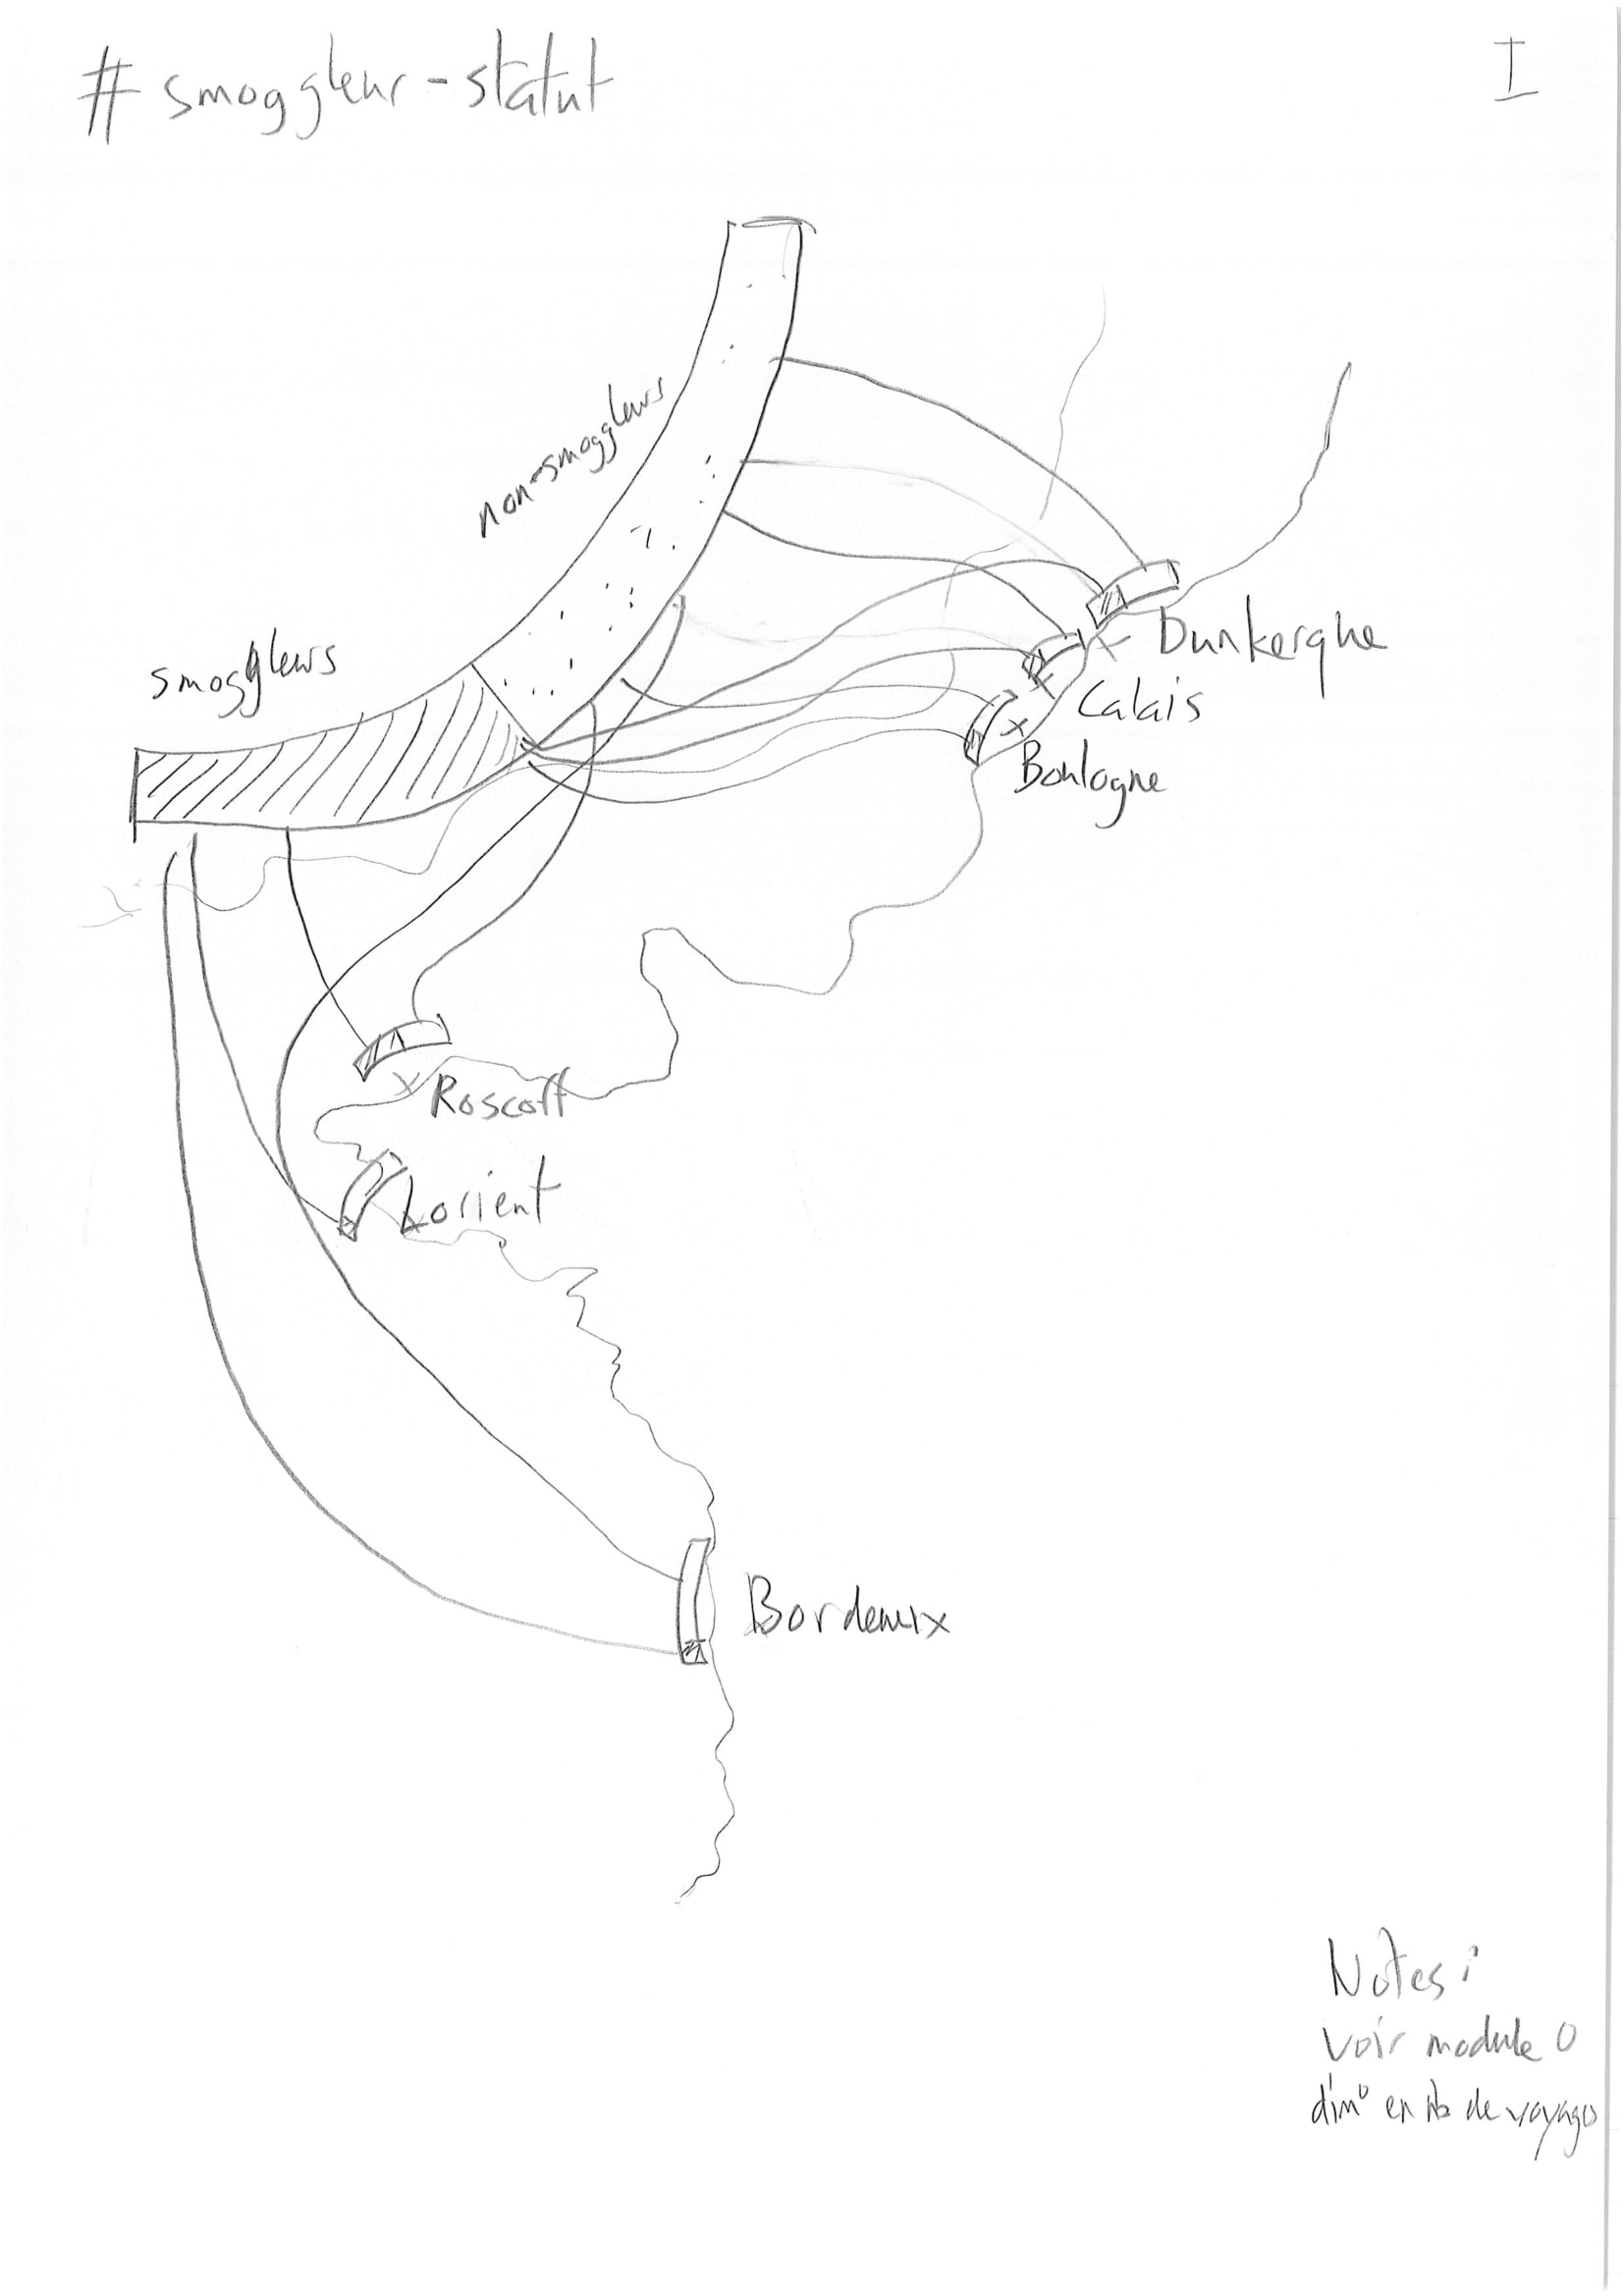 # smoggleur-statut
I
non-smoggleurs
smoggleurs
Dunkerque
Calais
Boulogne
Roscoff
Lorient
Bordeaux
Notes:
voir module 0
dim° en nb de voyages